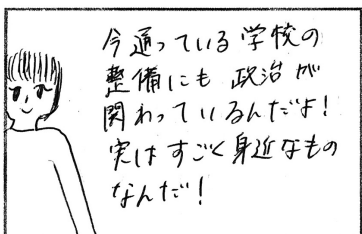 今通っている学校の
整備にも政治が
関わっているんだよ!
実はすごく身近なもの
なんだ!